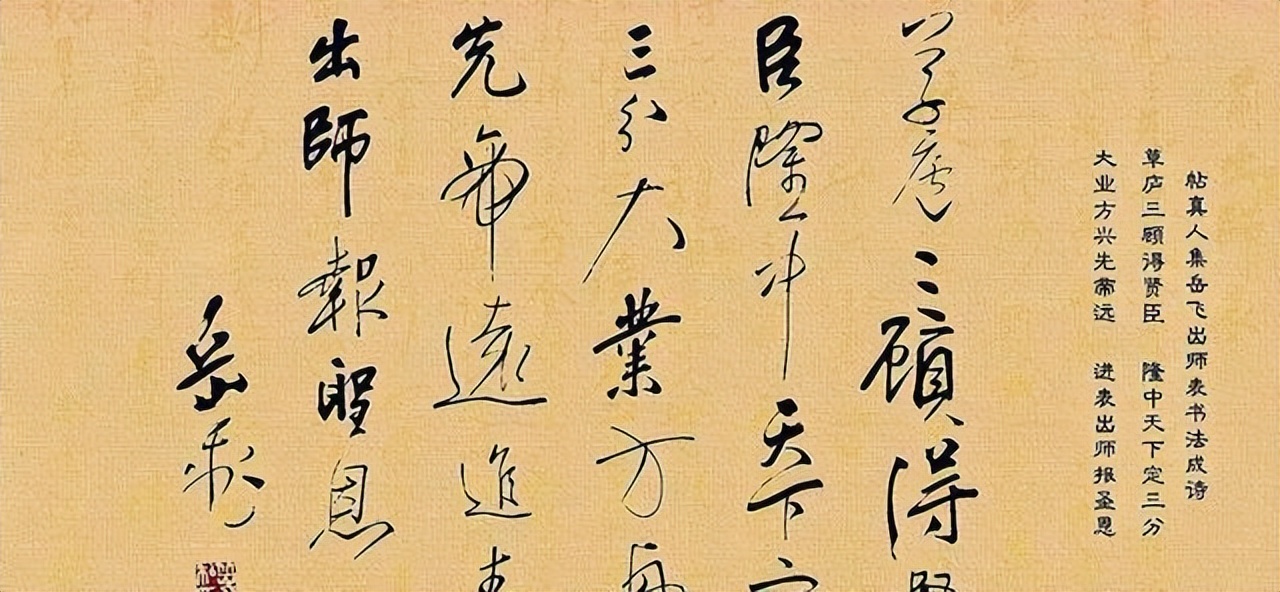 帖真人集岳飞出师表书法成诗
草庐三顧得贤臣 隆中天下定三分
大业方兴先帝远 进表出师报圣恩
草廬三顧得
臣隆中天下
三分大業方興
先帝遠進表
出師報聖恩
岳飛